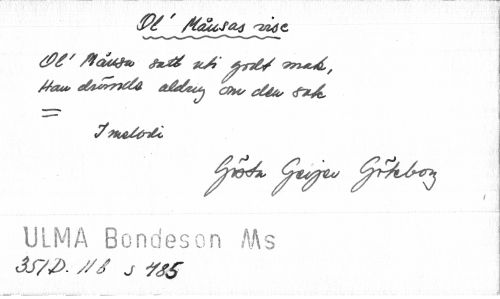 Ol' Månsas vise
Ol' Månsa satt uti godt mak,
Han drömde aldrig om den sak
=
1 melodi
Gösta Geijer Göteborg
ULMA Bondeson Ms
351D. 11B s 485